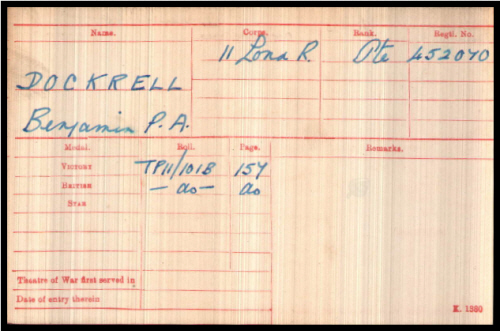 Name. Corps. Rank. Regtl. No.
11 Lond R. Pte 452070
DOCKRELL
Benjamin P. A.
Medal. Roll. Page. Remarks.
VICTORY TP11/101B 157
BRITISH - do - do
STAR
Theatre of War first served in
Date of entry therein
K. 1380